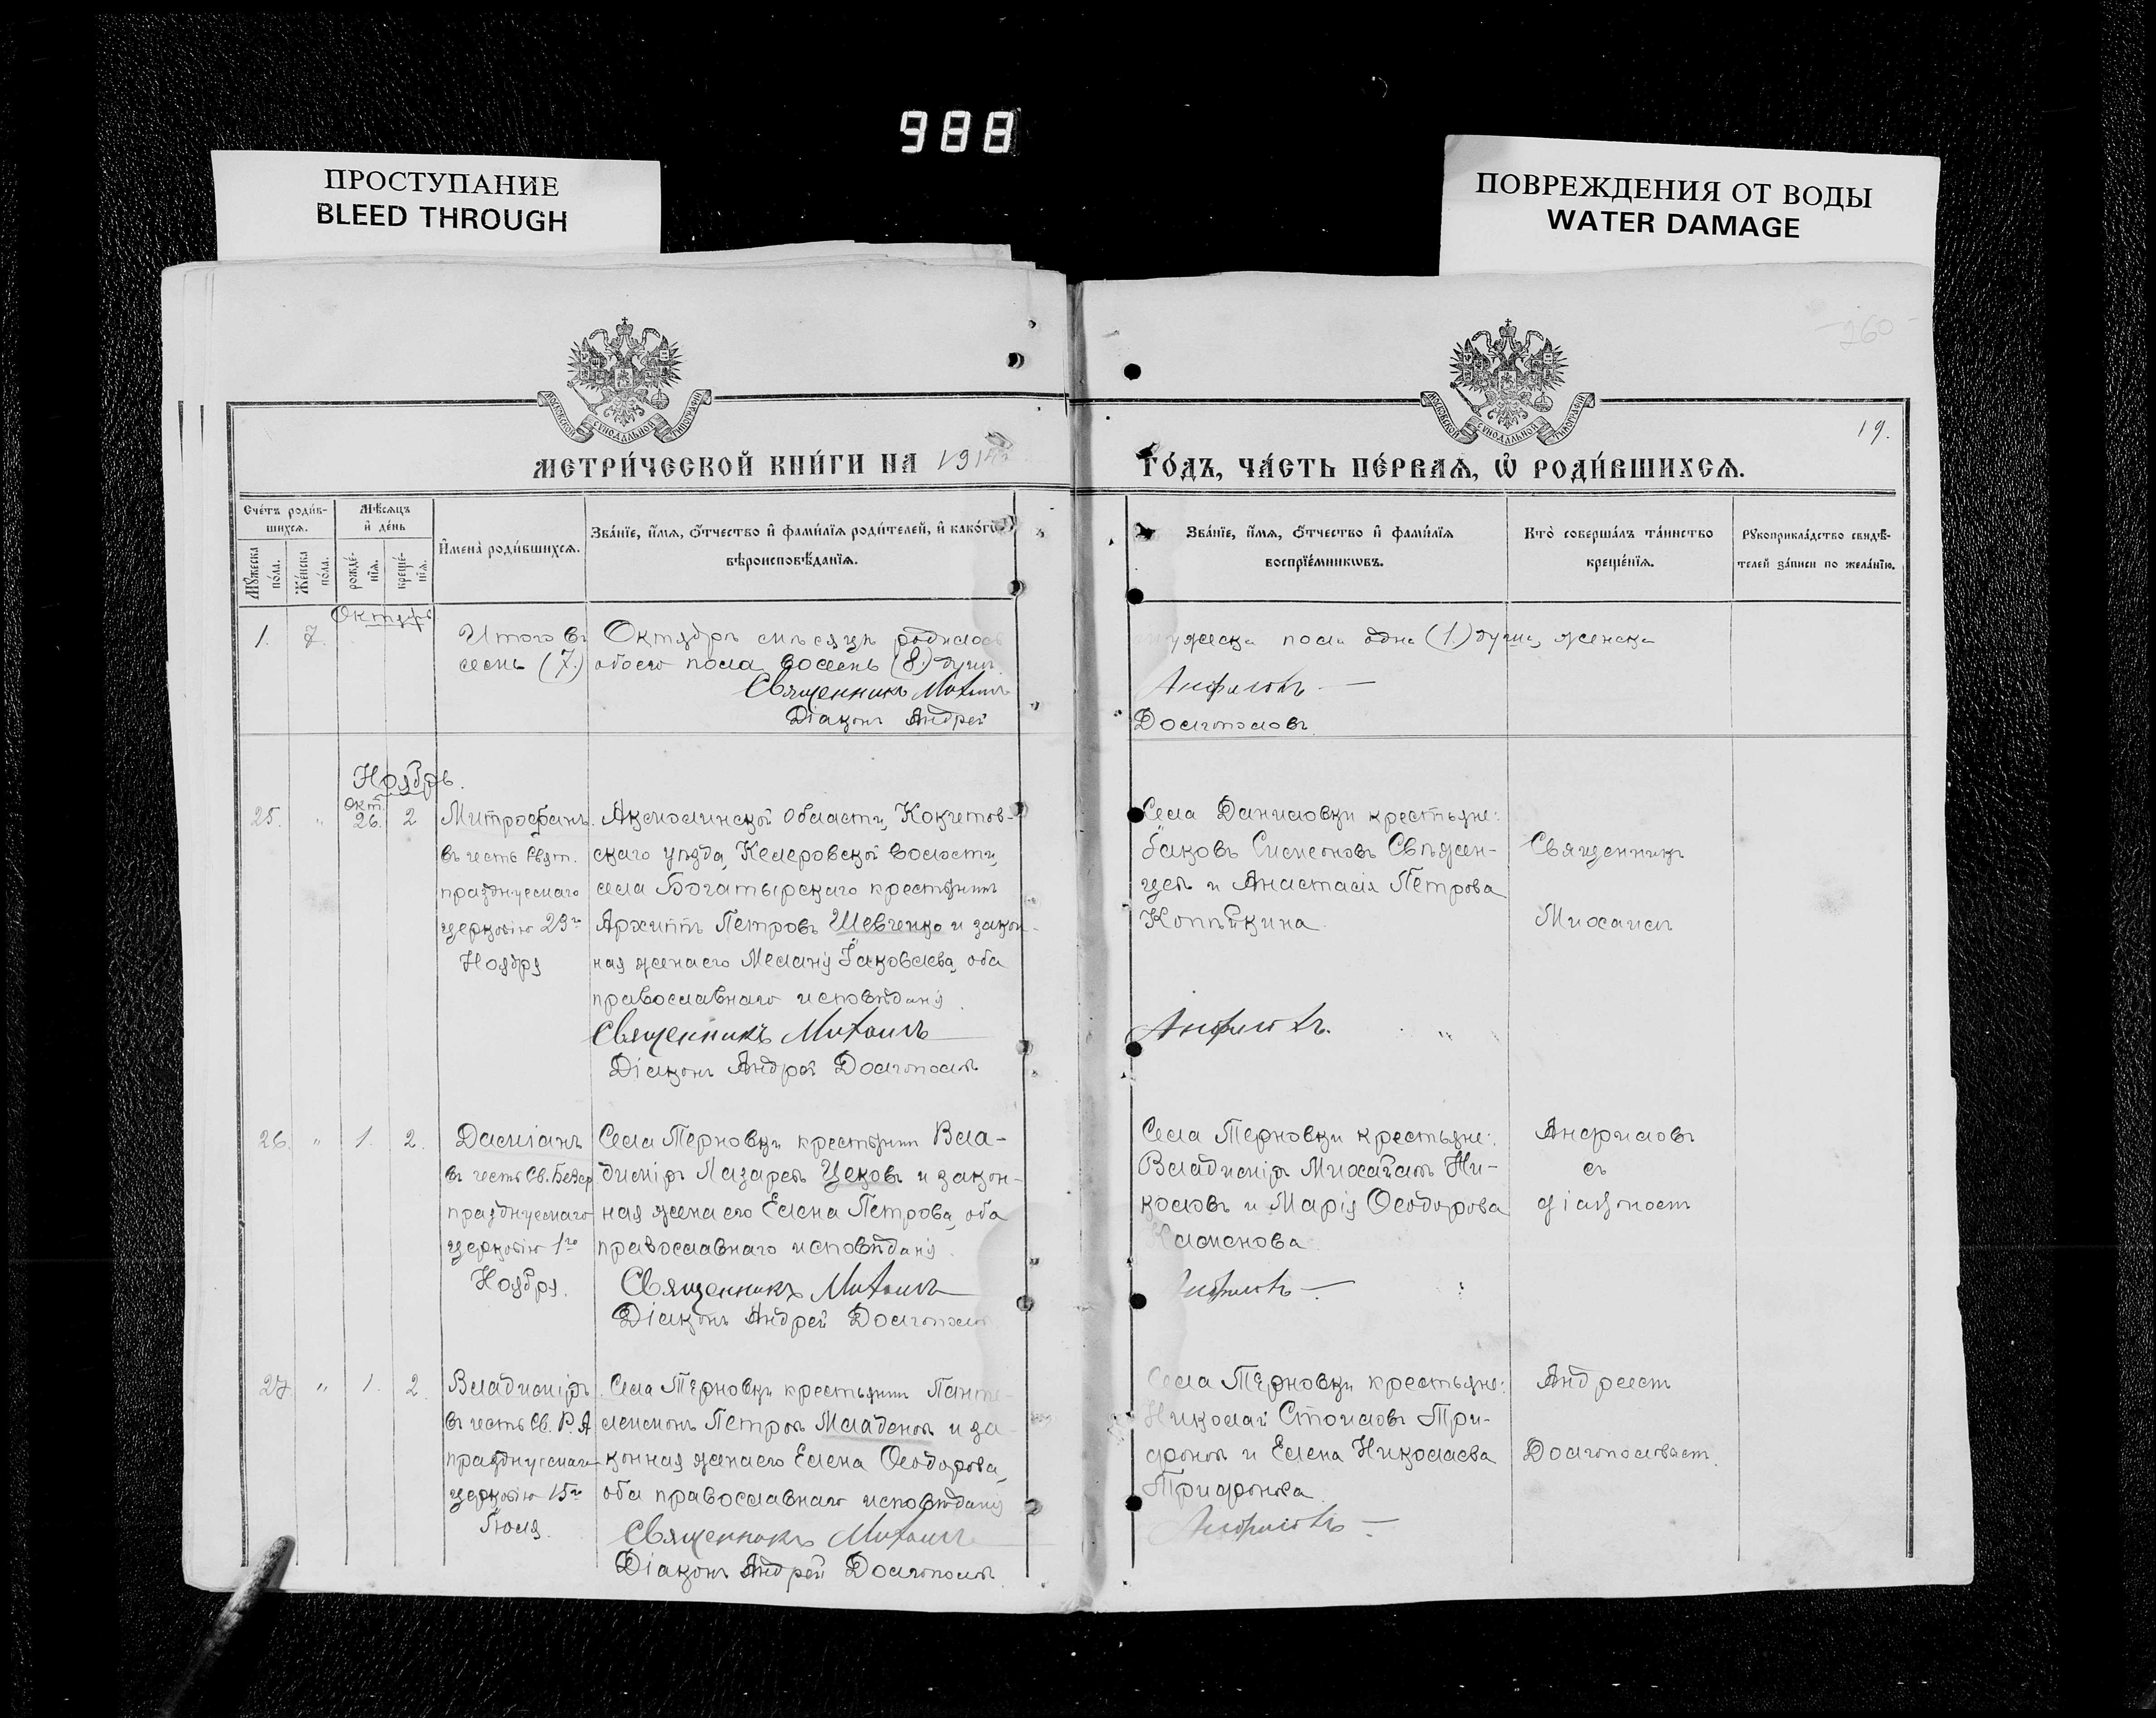 988
ПРОСТУПАНИЕ
BLEED THROUGH
ПОВРЕЖДЕНИЯ ОТ ВОДЫ
WATER DAMAGE
260
19.
МОСКОВСКОЙ СѴНОДАЛЬНОЙ ТИПОГРАФІИ
МОСКОВСКОЙ СѴНОДАЛЬНОЙ ТИПОГРАФІИ
МЕТРИ́ЧЕСКОЙ КНИ́ГИ НА 191
ГО́ДЪ, ЧА́СТЬ ПЕ́РВАѦ, Ѡ҆ РОДИ́ВШИХСѦ.
Сче́тъ роди́в-
шихсѧ.
Мꙋ́жеска
по́ла.
Же́нска
по́ла.
Мѣ́сѧцъ
и҆ де́нь
рожде́-
нїѧ.
креще́-
нїѧ.
И҆мена̀ роди́вшихсѧ.
Зва́нїе, и҆́мѧ, ѻ҆́тчество и҆ фами́лїѧ роди́телей, и҆ како́гѡ
вѣроисповѣ́данїѧ.
Зва́нїе, и҆́мѧ, ѻ҆́тчество и҆ фами́лїѧ
воспрїе́мникѡвъ.
Кто̀ соверша́лъ та́инство
креще́нїѧ.
Рꙋкоприкла́дство свидѣ́-
телей за́писи по жела́нїю.
Октябрь
1. 7. Итого въ Октябрѣ мѣсяцѣ родилось мужеска пола одна (1.) душа, женска
семь (7.) обоего пола восемь (8.) душъ
Священникъ Михаилъ Анфиловъ
Діаконъ Андрей Долгополовъ
Ноябрь.
25. " Окт. 26. 2
Митрофанъ.
въ честь Свят.
празднуемаго
церковію 23го
Ноября
Акмолинской области, Кокчетов-
скаго уѣзда, Келеровской волости,
села Богатырскаго крестьянинъ
Архиппъ Петровъ Шевченко и закон-
ная жена его Меланія Іаковлева, оба
православнаго исповѣданія.
Священникъ Михаилъ
Діаконъ Андрей Долгополовъ
Села Даниловки крестьяне:
Іаковъ Симеоновъ
и Анастасія Петрова
Копѣйкина.
Анфиловъ.
Священникъ
Михаилъ
26. " 1. 2.
Даміанъ
въ честь Св. Безср.
празднуемаго
церковію 1го
Ноября.
Села Терновки крестьянинъ Вла-
диміръ Лазаревъ Цековъ и закон-
ная жена его Елена Петрова, оба
православнаго исповѣданія.
Священникъ Михаилъ
Діаконъ Андрей Долгополовъ
Села Терновки крестьяне:
Владиміръ Михаиловъ Ни-
коловъ и Марія Ѳеодорова
Каменова.
Анфиловъ
Анфиловъ
съ
діакономъ
27. " 1. 2.
Владиміръ
въ честь Св. Р. А.
празднуемаго
церковію 15го
Іюля.
Села Терновки крестьянинъ Панте-
леимонъ Петровъ Младеновъ и за-
конная жена его Елена Ѳеодорова,
оба православнаго исповѣданія
Священникъ Михаилъ
Діаконъ Андрей Долгополовъ
Села Терновки крестьяне:
Николай Стоиловъ Три-
фоновъ и Елена Николаева
Трифонова.
Анфиловъ
Андреемъ
Долгополовымъ.